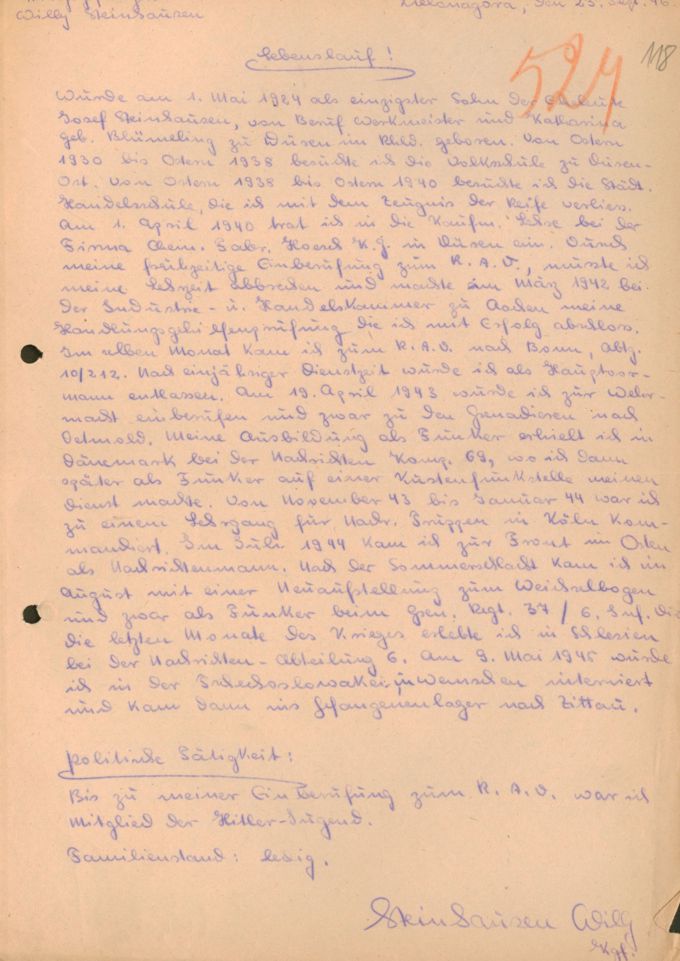 Willy Steinhausen
den 25. Sept. 46.
524
118
Lebenslauf!
Wurde am 1. Mai 1924 als einzigster Sohn der Eheleute
Josef Steinhausen, von Beruf Werkmeister und Katharina
geb. Blümeling zu Düren im Rhld. geboren. Von Ostern
1930 bis Ostern 1938 besuchte ich die Volkschule zu Düren-
Ost. Von Ostern 1938 bis Ostern 1940 besuchte ich die Städt.
Handelschule, die ich mit dem Zeugnis der Reife verliess.
Am 1. April 1940 trat ich in die Kaufm. Lehre bei der
Firma Chem. Fabr. Hoesch K.G. in Düren ein. Durch
meine frühzeitige Einberufung zum R.A.D., musste ich
meine Lehrzeit abbrechen und machte im März 1942 bei
der Industrie- u. Handelskammer zu Aachen meine
Handlungsgehilfenprüfung die ich mit Erfolg abschloss.
Im selben Monat kam ich zum R.A.D. nach Bonn, Abtg.
10/212. Nach einjähriger Dienstzeit wurde ich als Hauptvor-
mann entlassen. Am 19. April 1943 wurde ich zur Wehr-
macht einberufen und zwar zu den Grenadieren nach
Detmold. Meine Ausbildung als Funker erhielt ich in
Dänemark bei der Nachrichten Komp. 69, wo ich dann
später als Funker auf einer Küstenfunkstelle meinen
Dienst machte. Von November 43 bis Januar 44 war ich
zu einem Lehrgang für Nachr. Truppen in Köln Kom-
mandiert. Im Juli 1944 kam ich zur Front im Osten
als Nachrichtenmann. Nach der Sommerschlacht kam ich im
August mit einer Neuaufstellung zum Weichselbogen
und zwar als Funker beim Gren. Regt. 37/6. Inf. Div.
die letzten Monate des Krieges erlebte ich in Schlesien
bei der Nachrichten-Abteilung 6. Am 9. Mai 1945 wurde
ich in der Tschechoslowakei, in interniert
und kam dann ins Gefangenenlager nach Zittau.
politische Tätigkeit:
Bis zu meiner Einberufung zum R.A.D. war ich
Mitglied der Hitler-Jugend.
Familienstand: ledig.
Steinhausen Willy
Kgf.